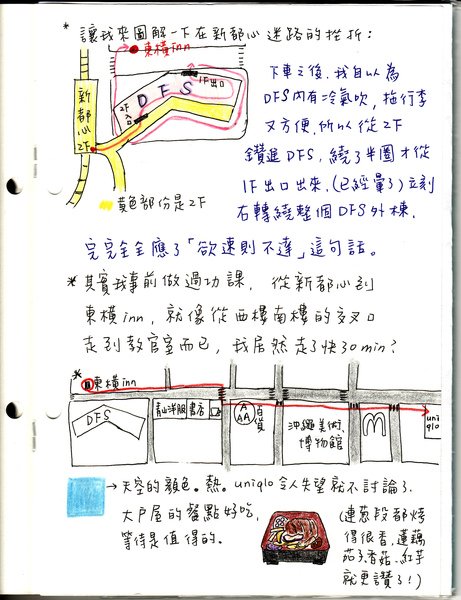 * 讓我來圖解一下在新都心迷路的挫折:
東橫inn
1F出口
DFS
2F入口
新都心2F
黃色部份是2F
下車之後,我自以為
DFS內有冷氣吹,拖行李
又方便,所以從2F
鑽進DFS,繞了半圈才從
1F出口出來,(已經暈了)立刻
右轉繞整個DFS外棟,
完完全全應了「欲速則不達」這句話。
* 其實我事前做過功課,從新都心到
東橫inn,就像從西樓南樓的交叉口
走到教官室而已,我居然走了快30min?
*
東橫inn
DFS
青山洋服
書店
A
AA
百貨
沖繩美術.
博物館
M
uniqlo
→天空的顏色。熱。uniqlo令人失望就不討論了.
大戶屋的餐點好吃,
等待是值得的。
(連蔥段都烤
得很香,蓮藕
茄子香菇、紅芋
就更讚了!)